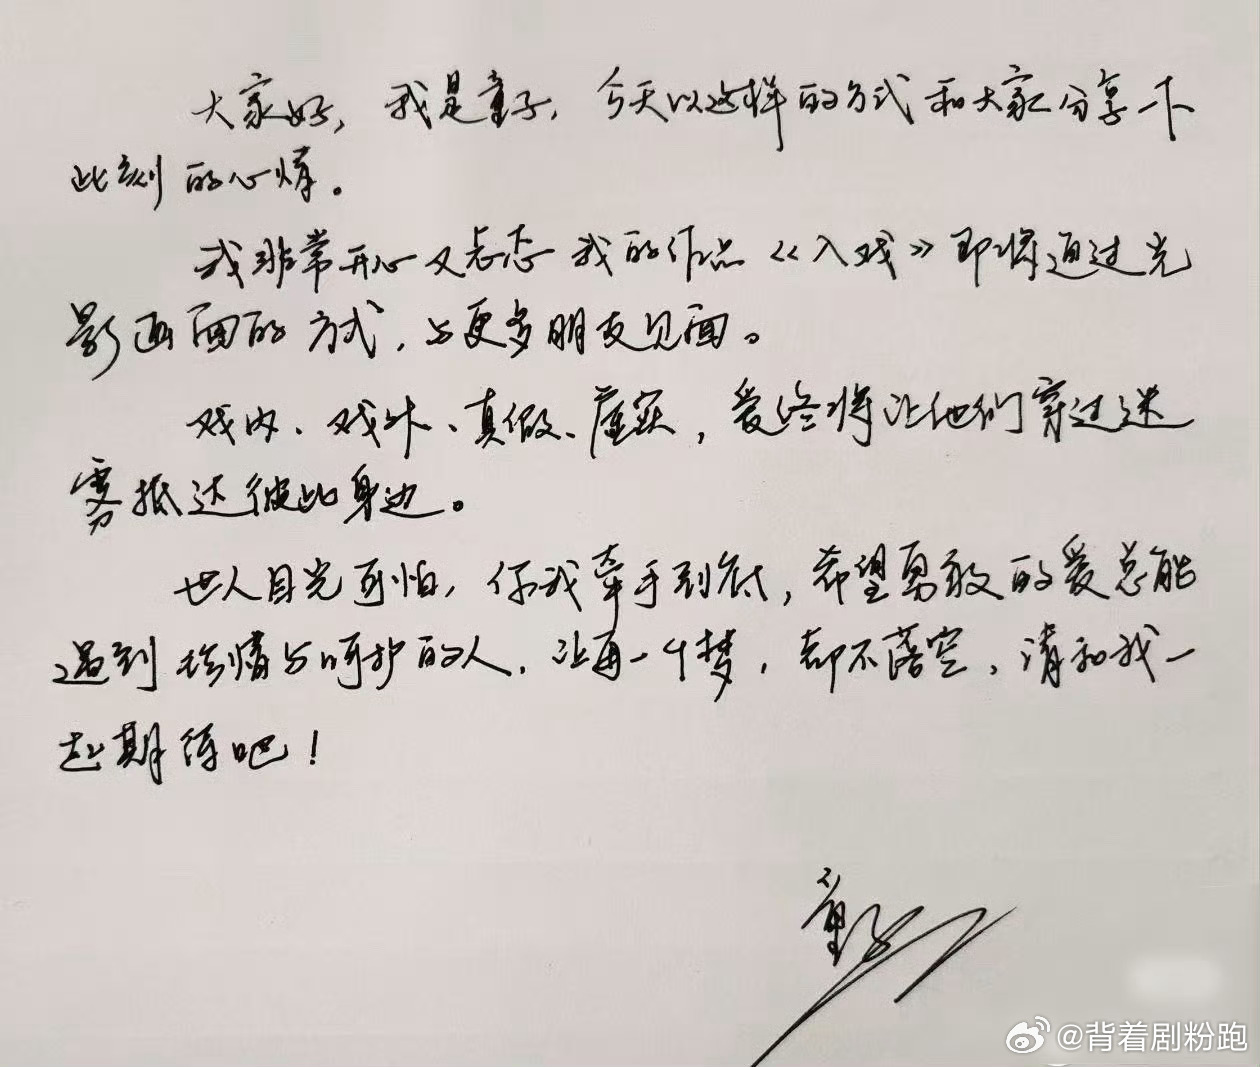 大家好，我是童子，今天以这样的方式和大家分享一下
此刻的心情。
我非常开心又忐忑我的作品《入戏》即将通过光
影画面的方式，与更多朋友见面。
戏内、戏外、真假、虚实，爱终将让他们穿过迷
雾抵达彼此身边。
世人目光可怕，你我牵手到底，希望勇敢的爱总能
遇到珍惜与呵护的人，让每一个梦，都不落空，请和我一
起期待吧！
童子
@背着剧粉跑